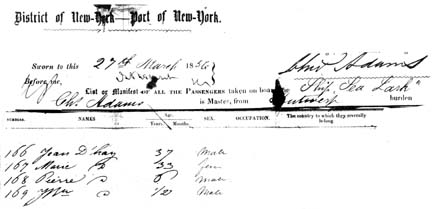 District of New-York—Port of New-York.
Sworn to this 27th March 1836
Before me,
Chs Adams
List or Manifest OF ALL THE PASSENGERS taken on board Ship Sea Lark
Chs Adams is Master, from Antwerp burden
NAMES Age. Years. Months. SEX. OCCUPATION. The country to which they severally belong.
166 Jean D'hay 37 Male
167 Marie 33 fem
168 Pierre 6 Male
169 1/2 Male